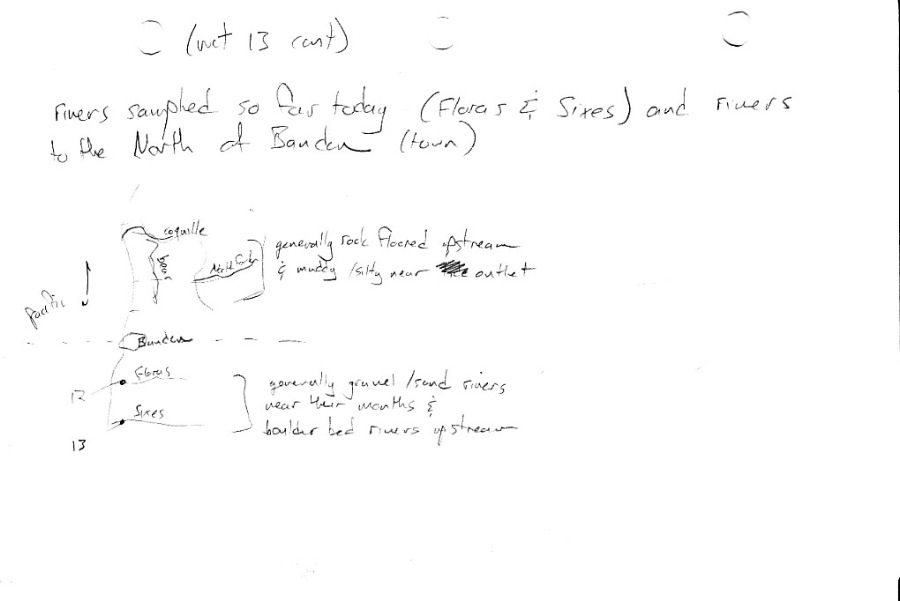 (wet 13 cont)
rivers sampled so far today (Floras & Sixes) and rivers
to the North of Bandon (town)
coquille
coos
North Fork
generally rock floored upstream
& muddy/silty near outlet
Pacific
Bandon
Floras
12
Sixes
13
generally gravel/sand rivers
near their mouths &
boulder bed rivers upstream